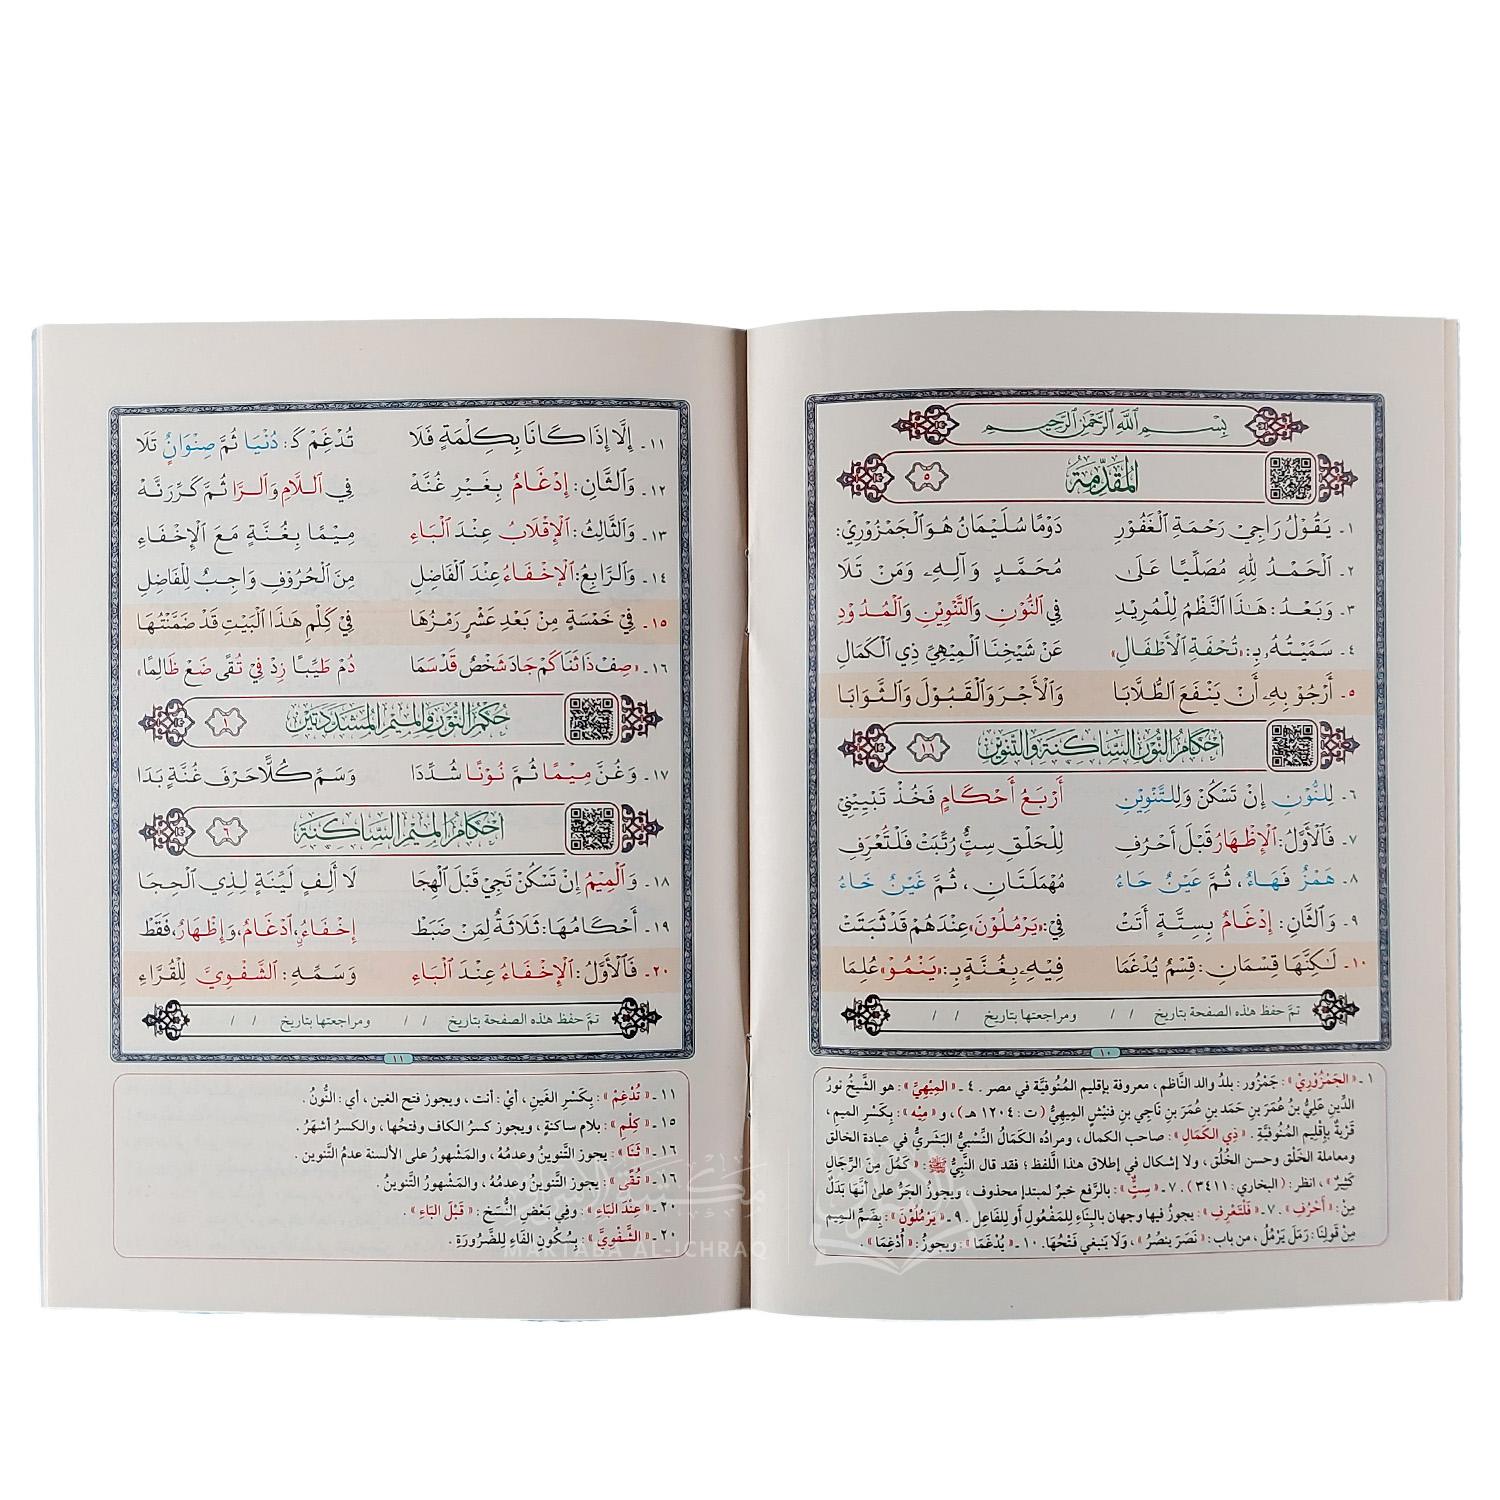 بِسْمِ ٱللَّهِ ٱلرَّحْمَٰنِ ٱلرَّحِيمِ
المُقَدِّمَةُ ٥
١ - يَقُوْلُ رَاجِيْ رَحْمَةِ الْغَفُوْرِ دَوْمًا سُلَيْمَانُ هُوَ الْجَمْزُوْرِيْ:
٢ - الْحَمْدُ لِلهِ مُصَلِّيًا عَلَىٰ مُحَمَّدٍ وَآلِهِۦ وَمَنْ تَلَا
٣ - وَبَعْدُ: هَٰذَا النَّظْمُ لِلْمُرِيْدِ فِي النُّوْنِ وَالتَّنْوِيْنِ وَالْمُدُوْدِ
٤ - سَمَّيْتُهُۥ بِـ: «تُحْفَةِ الْأَطْفَالِ» عَنْ شَيْخِنَا الْمِيْهِيِّ ذِي الْكَمَالِ
٥ - أَرْجُوْ بِهِۦ أَنْ يَنْفَعَ الطُّلَّابَا وَالْأَجْرَ وَالْقَبُوْلَ وَالثَّوَابَا
أَحْكَامُ النُّوْنِ السَّاكِنَةِ وَالتَّنْوِيْنِ ١١
٦ - لِلنُّوْنِ إِنْ تَسْكُنْ وَلِلتَّنْوِيْنِ أَرْبَعُ أَحْكَامٍ فَخُذْ تَبْيِيْنِيْ
٧ - فَالْأَوَّلُ: الْإِظْهَارُ قَبْلَ أَحْرُفِ لِلْحَلْقِ سِتٌّ رُتِّبَتْ فَلْتُعْرَفِ
٨ - هَمْزٌ فَهَاءٌ، ثُمَّ عَيْنٌ حَاءُ مُهْمَلَتَانِ، ثُمَّ غَيْنٌ خَاءُ
٩ - وَالثَّانِ: إِدْغَامٌ بِسِتَّةٍ أَتَتْ فِيْ: «يَرْمُلُوْنَ» عِنْدَهُمْ قَدْ ثَبَتَتْ
١٠ - لَٰكِنَّهَا قِسْمَانِ: قِسْمٌ يُدْغَمَا فِيْهِۦ بِغُنَّةٍ بِـ: «يَنْمُوْ» عُلِمَا
تمَّ حفظ هٰذه الصفحة بتاريخ / / ومراجعتها بتاريخ / /
١٠
١ - «الجَمْزُوْرِيْ»: جَمْزُور: بلدُ والد النَّاظم، معروفة بإقليم المُنُوفيَّة في مصر. ٤ - «المِيْهِيِّ»: هو الشَّيخُ نورُ
الدِّينِ عَلِيُّ بنُ عُمَرَ بنِ حَمَدِ بنِ عُمَرَ بنِ نَاجِي بنِ فنَيْشٍ المِيهِيُّ (ت: ١٢٠٤ هـ)، و«مِيْه»: بكَسْرِ الميمِ،
قَرْيَةٌ بإقليمِ المُنُوفيَّةِ. «ذِي الكَمَالِ»: صاحب الكمال، ومرادُه الكَمَالُ النِّسْبيُّ البَشَريُّ في عبادة الخالق
ومعاملة الخَلْق وحسن الخُلُق، ولا إشكال في إطلاق هٰذا اللَّفظ؛ فقد قال النَّبيُّ ﷺ: «كَمُلَ مِنَ الرِّجَالِ
كَثِيْرٌ»، انظر: (البخاري: ٣٤١١). ٧ - «سِتٌّ»: بالرَّفعِ خبرٌ لمبتدإ محذوف، ويجوزُ الجَرُّ علىٰ أنَّها بَدَلٌ
مِنْ: «أَحْرُفِ». ٧ - «فَلْتُعْرَفِ»: يجوزُ فيها وجهان بالبِنَاءِ للمَفْعُولِ أو للفَاعِلِ. ٩ - «يَرْمُلُوْنَ»: بضَمِّ المِيمِ
مِنْ قولِنَا: رَمَلَ يَرْمُلُ، من باب: «نَصَرَ يَنصُرُ»، وَلَا يَنبغي فَتْحُهَا. ١٠ - «يُدْغَمَا»: ويجوز: «أُدْغِمَا».
١١ - إِلَّا إِذَا كَانَا بِكِلْمَةٍ فَلَا تُدْغِمْ كَـ: دُنْيَا ثُمَّ صِنْوَانٌ تَلَا
١٢ - وَالثَّانِ: إِدْغَامٌ بِغَيْرِ غُنَّهْ فِي اللَّامِ وَالرَّا ثُمَّ كَرِّرَنَّهْ
١٣ - وَالثَّالِثُ: الْإِقْلَابُ عِنْدَ الْبَاءِ مِيْمًا بِغُنَّةٍ مَعَ الْإِخْفَاءِ
١٤ - وَالرَّابِعُ: الْإِخْفَاءُ عِنْدَ الْفَاضِلِ مِنَ الْحُرُوْفِ وَاجِبٌ لِلْفَاضِلِ
١٥ - فِيْ خَمْسَةٍ مِنْ بَعْدِ عَشْرٍ رَمْزُهَا فِيْ كِلْمِ هَٰذَا الْبَيْتِ قَدْ ضَمَّنْتُهَا
١٦ - «صِفْ ذَا ثَنَا كَمْ جَادَ شَخْصٌ قَدْ سَمَا دُمْ طَيِّبًا زِدْ فِيْ تُقًى ضَعْ ظَالِمًا»
حُكْمُ النُّوْنِ وَالْمِيْمِ الْمُشَدَّدَتَيْنِ ١
١٧ - وَغُنَّ مِيْمًا ثُمَّ نُوْنًا شُدِّدَا وَسَمِّ كُلًّا حَرْفَ غُنَّةٍ بَدَا
أَحْكَامُ الْمِيْمِ السَّاكِنَةِ ٦
١٨ - وَالْمِيْمُ إِنْ تَسْكُنْ تَجِيْ قَبْلَ الْهِجَا لَا أَلِفٍ لَيِّنَةٍ لِذِي الْحِجَا
١٩ - أَحْكَامُهَا: ثَلَاثَةٌ لِمَنْ ضَبَطْ إِخْفَاءٌ، ادْغَامٌ، وَإِظْهَارٌ، فَقَطْ
٢٠ - فَالْأَوَّلُ: الْإِخْفَاءُ عِنْدَ الْبَاءِ وَسَمِّهِ: الشَّفْوِيَّ لِلْقُرَّاءِ
تمَّ حفظ هٰذه الصفحة بتاريخ / / ومراجعتها بتاريخ / /
١١
١١ - «تُدْغِمْ»: بكَسْرِ الغَينِ، أيْ: أنت، ويجوز فتح الغين، أي: النُّونُ.
١٥ - «كِلْمِ»: بلام ساكنةٍ، ويجوز كسرُ الكاف وفتحُها، والكسرُ أشهَرُ.
١٦ - «ثَنَا»: يجوز التَّنوينُ وعدمُهُ، والمَشْهُورُ على الألسنة عدمُ التَّنوين.
١٦ - «تُقًى»: يجوز التَّنوينُ وعدمُهُ، والمَشْهُورُ التَّنوينُ.
٢٠ - «عِنْدَ البَاءِ»: وفي بَعْضِ النُّسَخِ: «قَبْلَ البَاءِ».
٢٠ - «الشَّفْوِيَّ»: بسُكُونِ الفَاءِ للضَّرُورَةِ.
مكتبة الإشراق
MAKTABA AL-ICHRAQ